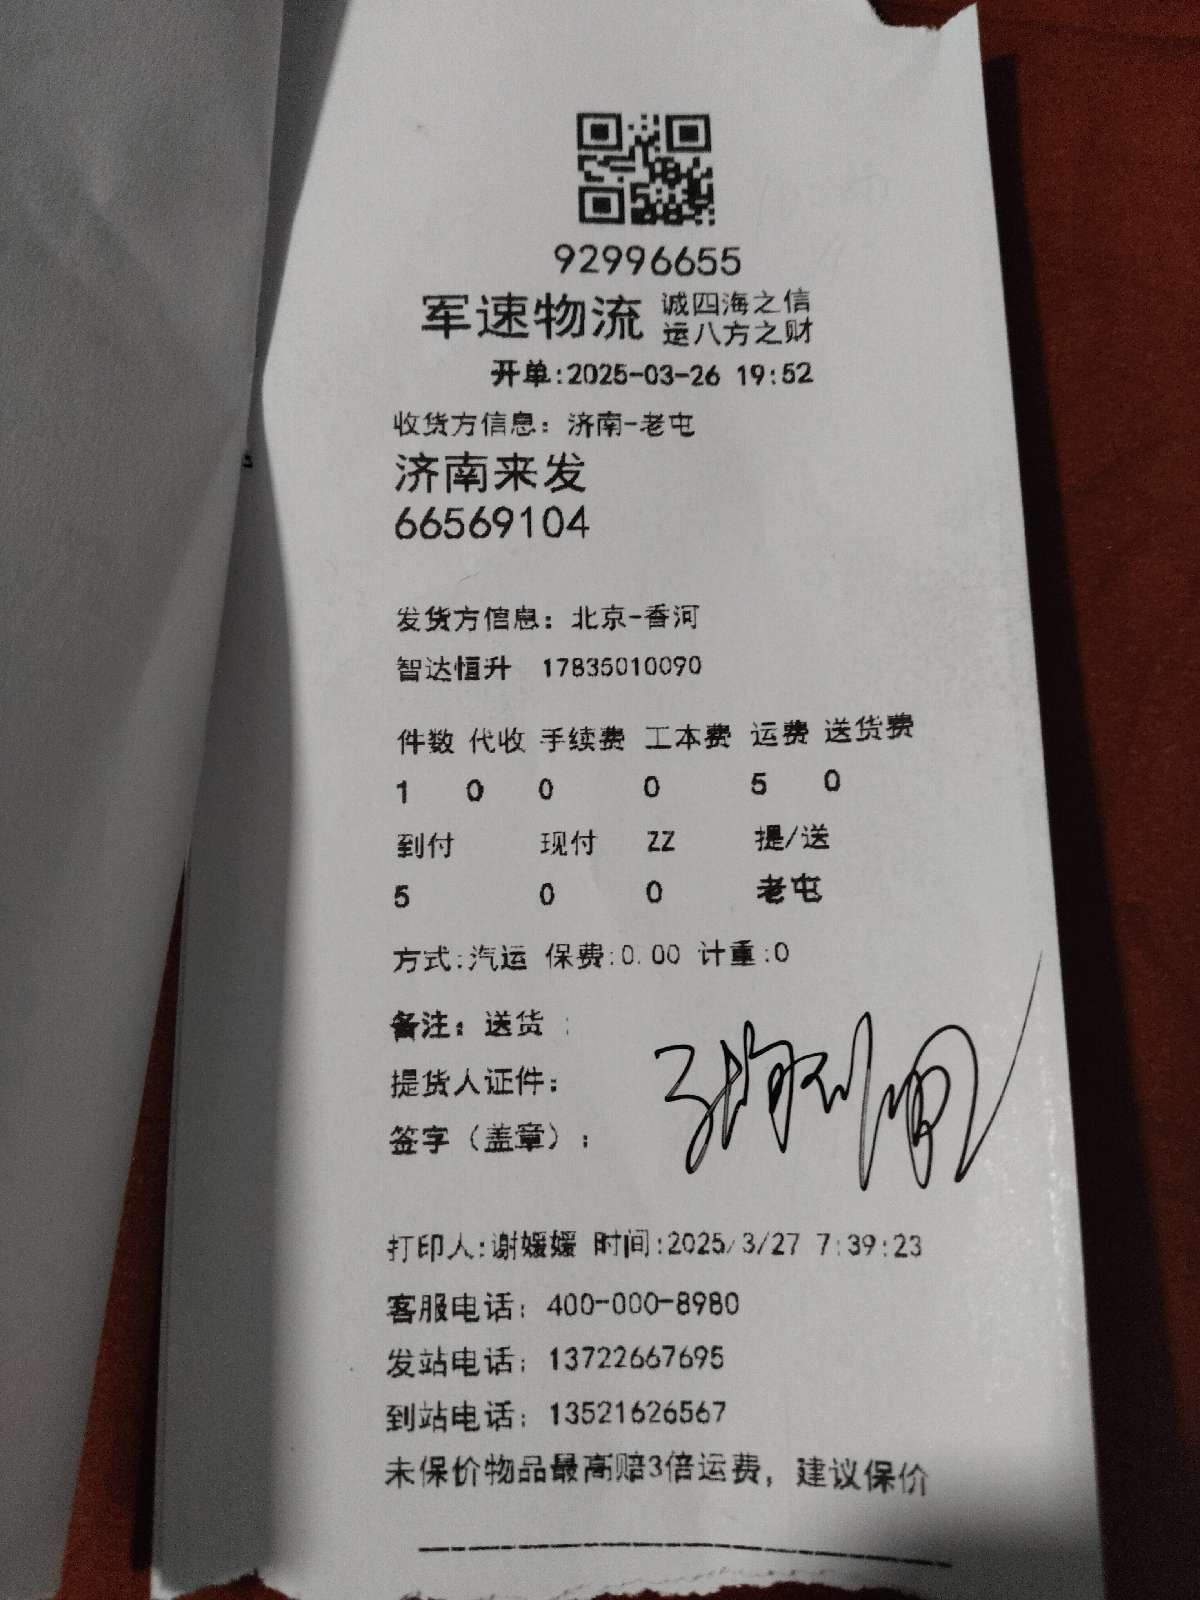 92996655
军速物流 诚四海之信
运八方之财
开单:2025-03-26 19:52
收货方信息：济南-老屯
济南来发
66569104
发货方信息：北京-香河
智达恒升 17835010090
件数 代收 手续费 工本费 运费 送货费
1 0 0 0 5 0
到付 现付 ZZ 提/送
5 0 0 老屯
方式:汽运 保费:0.00 计重:0
备注：送货 :
提货人证件：
签字（盖章）：
打印人:谢媛媛 时间:2025/3/27 7:39:23
客服电话：400-000-8980
发站电话：13722667695
到站电话：13521626567
未保价物品最高赔3倍运费，建议保价